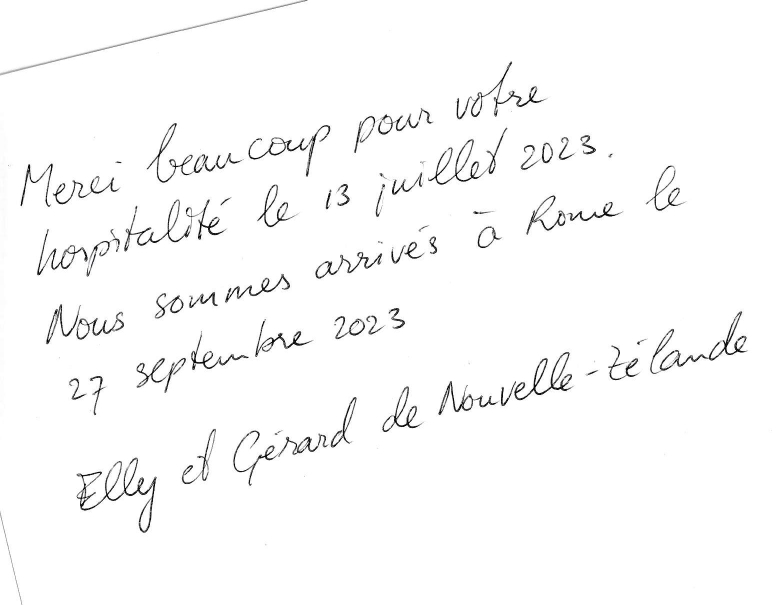 Merci beaucoup pour votre
hospitalité le 13 juillet 2023.
Nous sommes arrivés à Rome le
27 septembre 2023
Elly et Gérard de Nouvelle-Zélande